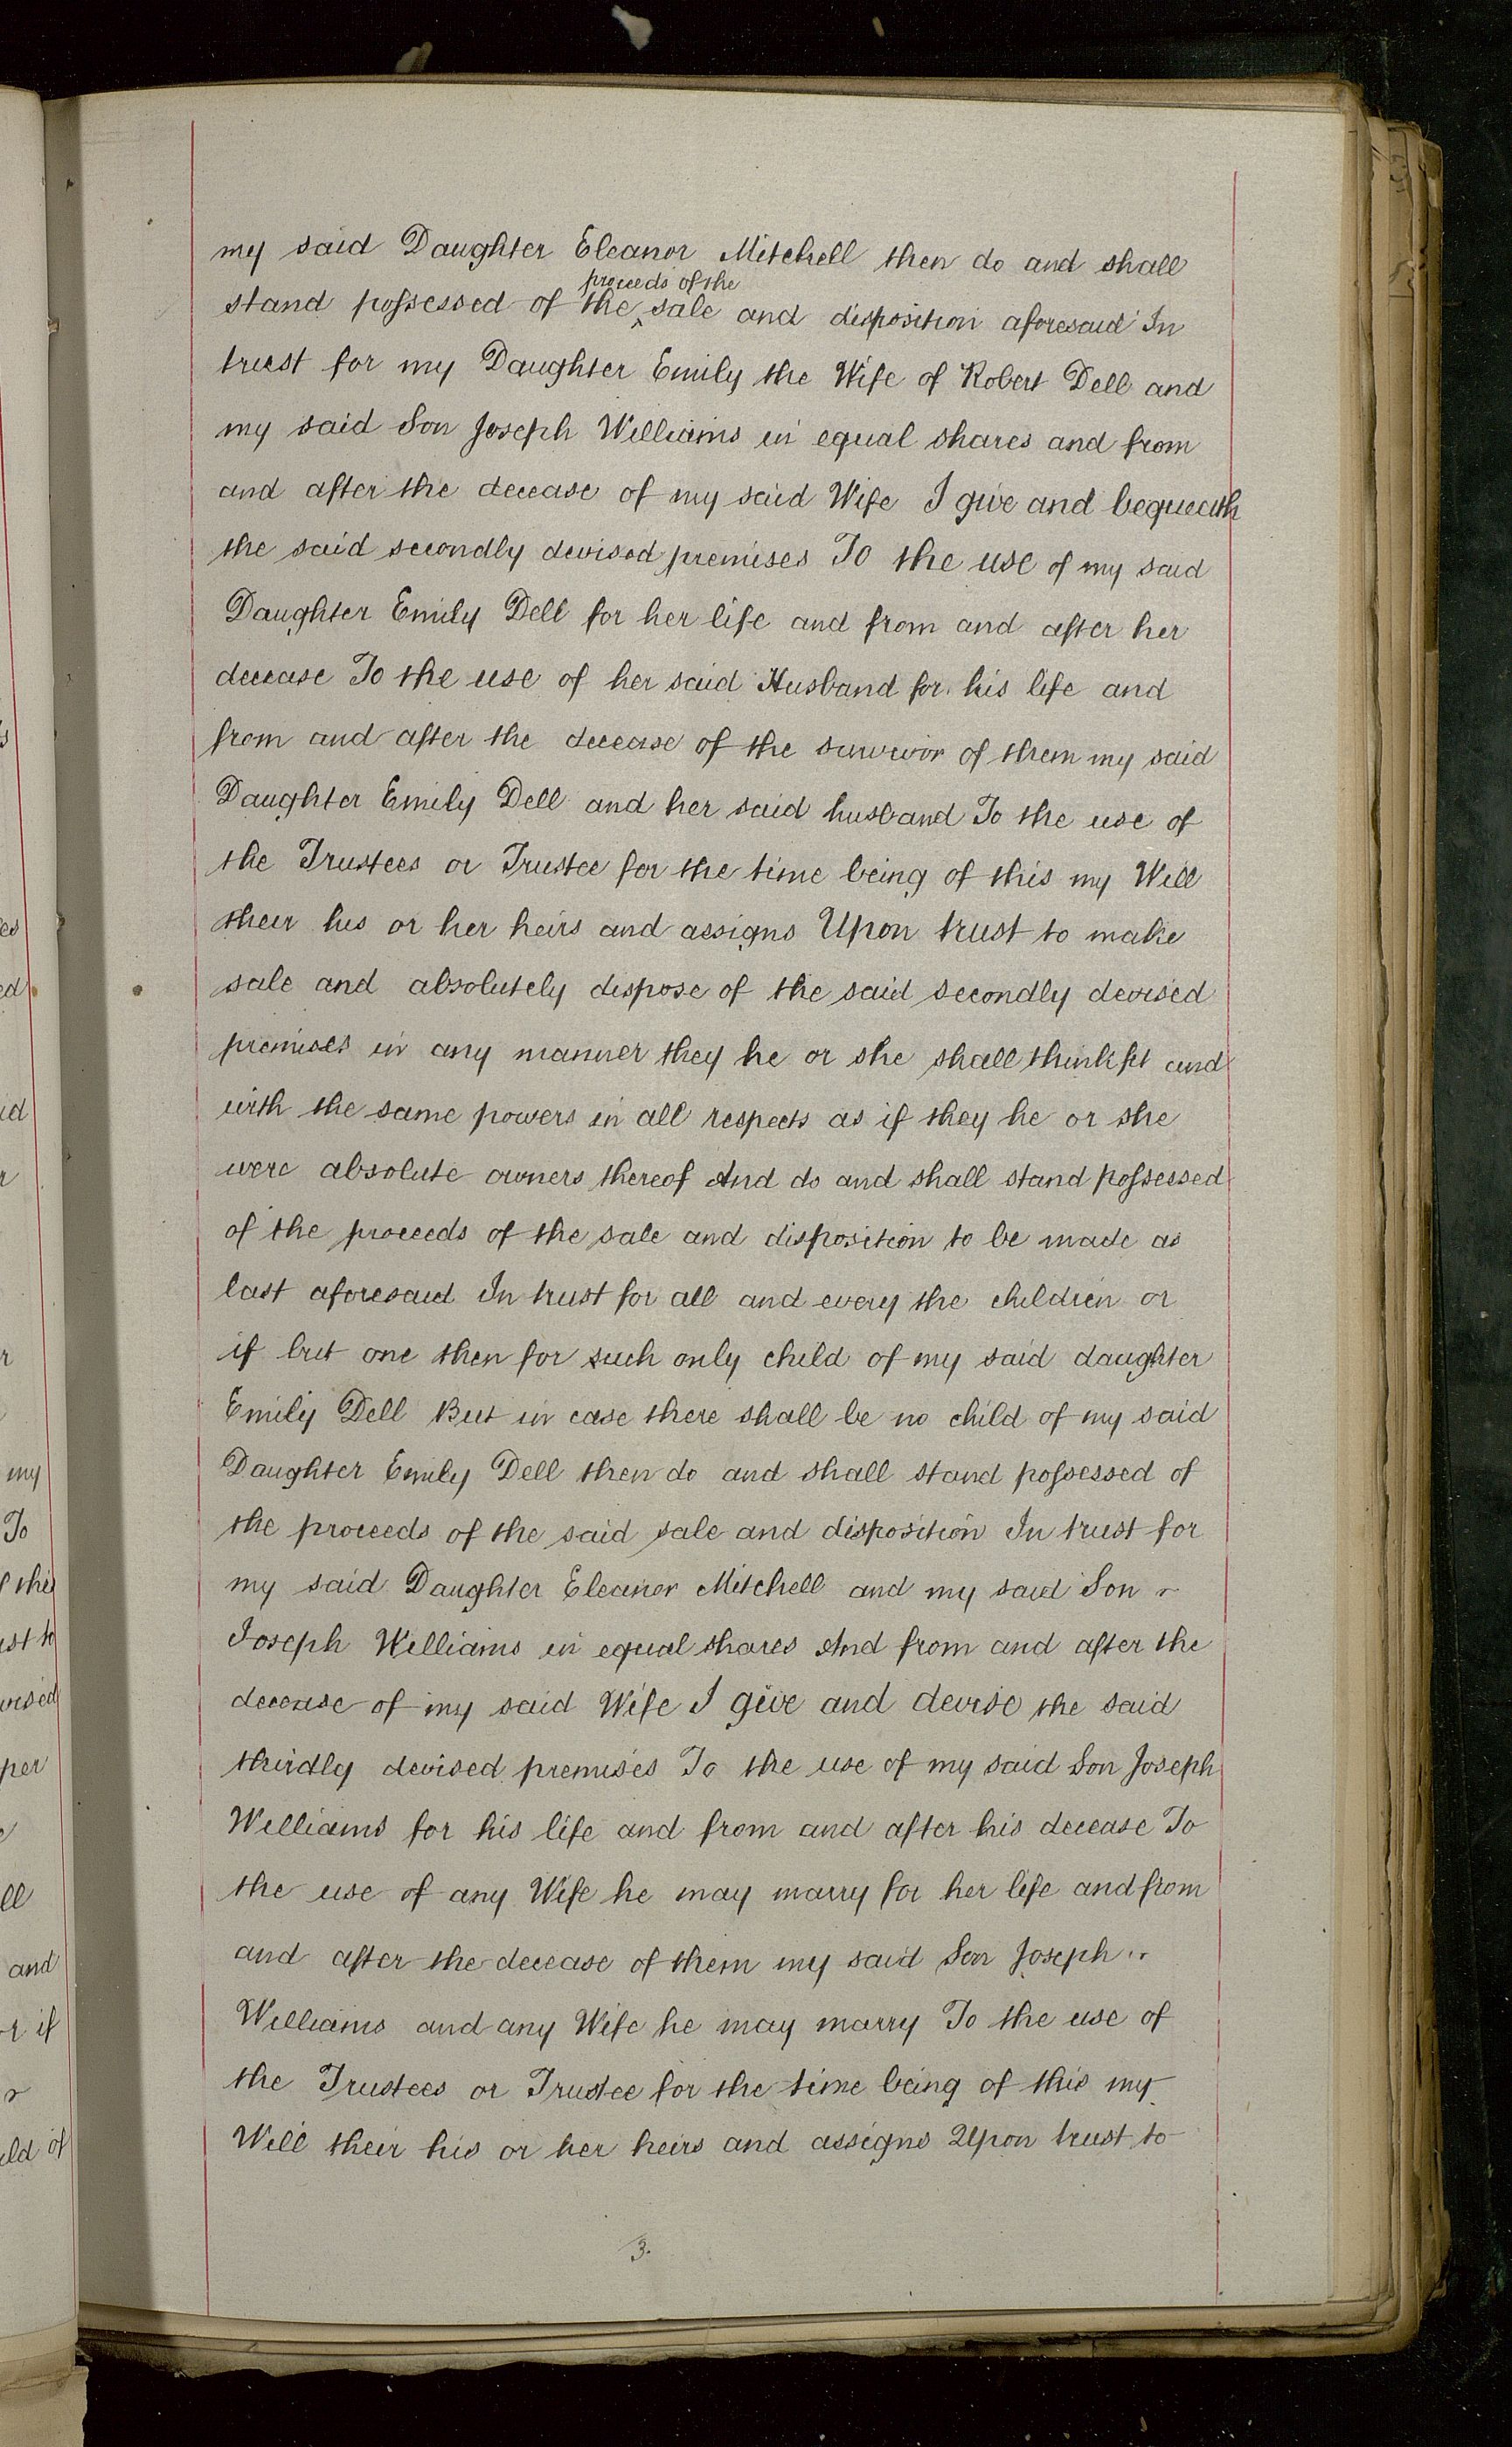 my said Daughter Eleanor Mitchell then do and shall
proceeds of the
stand possessed of the ‸ sale and disposition aforesaid In
trust for my Daughter Emily the Wife of Robert Dell and
my said Son Joseph Williams in equal shares and from
and after the decease of my said Wife I give and bequeath
the said secondly devised premises To the use of my said
Daughter Emily Dell for her life and from and after her
decease To the use of her said Husband for his life and
from and after the decease of the survivor of them my said
Daughter Emily Dell and her said husband To the use of
the Trustees or Trustee for the time being of this my Will
their his or her heirs and assigns Upon trust to make
sale and absolutely dispose of the said secondly devised
premises in any manner they he or she shall think fit and
with the same powers in all respects as if they he or she
were absolute owners thereof And do and shall stand possessed
of the proceeds of the sale and disposition to be made as
last aforesaid In trust for all and every the children or
if but one then for such only child of my said daughter
Emily Dell But in case there shall be no child of my said
Daughter Emily Dell then do and shall stand possessed of
the proceeds of the said sale and disposition In trust for
my said Daughter Eleanor Mitchell and my said Son
Joseph Williams in equal shares And from and after the
decease of my said Wife I give and devise the said
thirdly devised premises To the use of my said Son Joseph
Williams for his life and from and after his decease To
the use of any Wife he may marry for her life and from
and after the decease of them my said Son Joseph
Williams and any Wife he may marry To the use of
the Trustees or Trustee for the time being of this my
Will their his or her heirs and assigns Upon trust to
3.